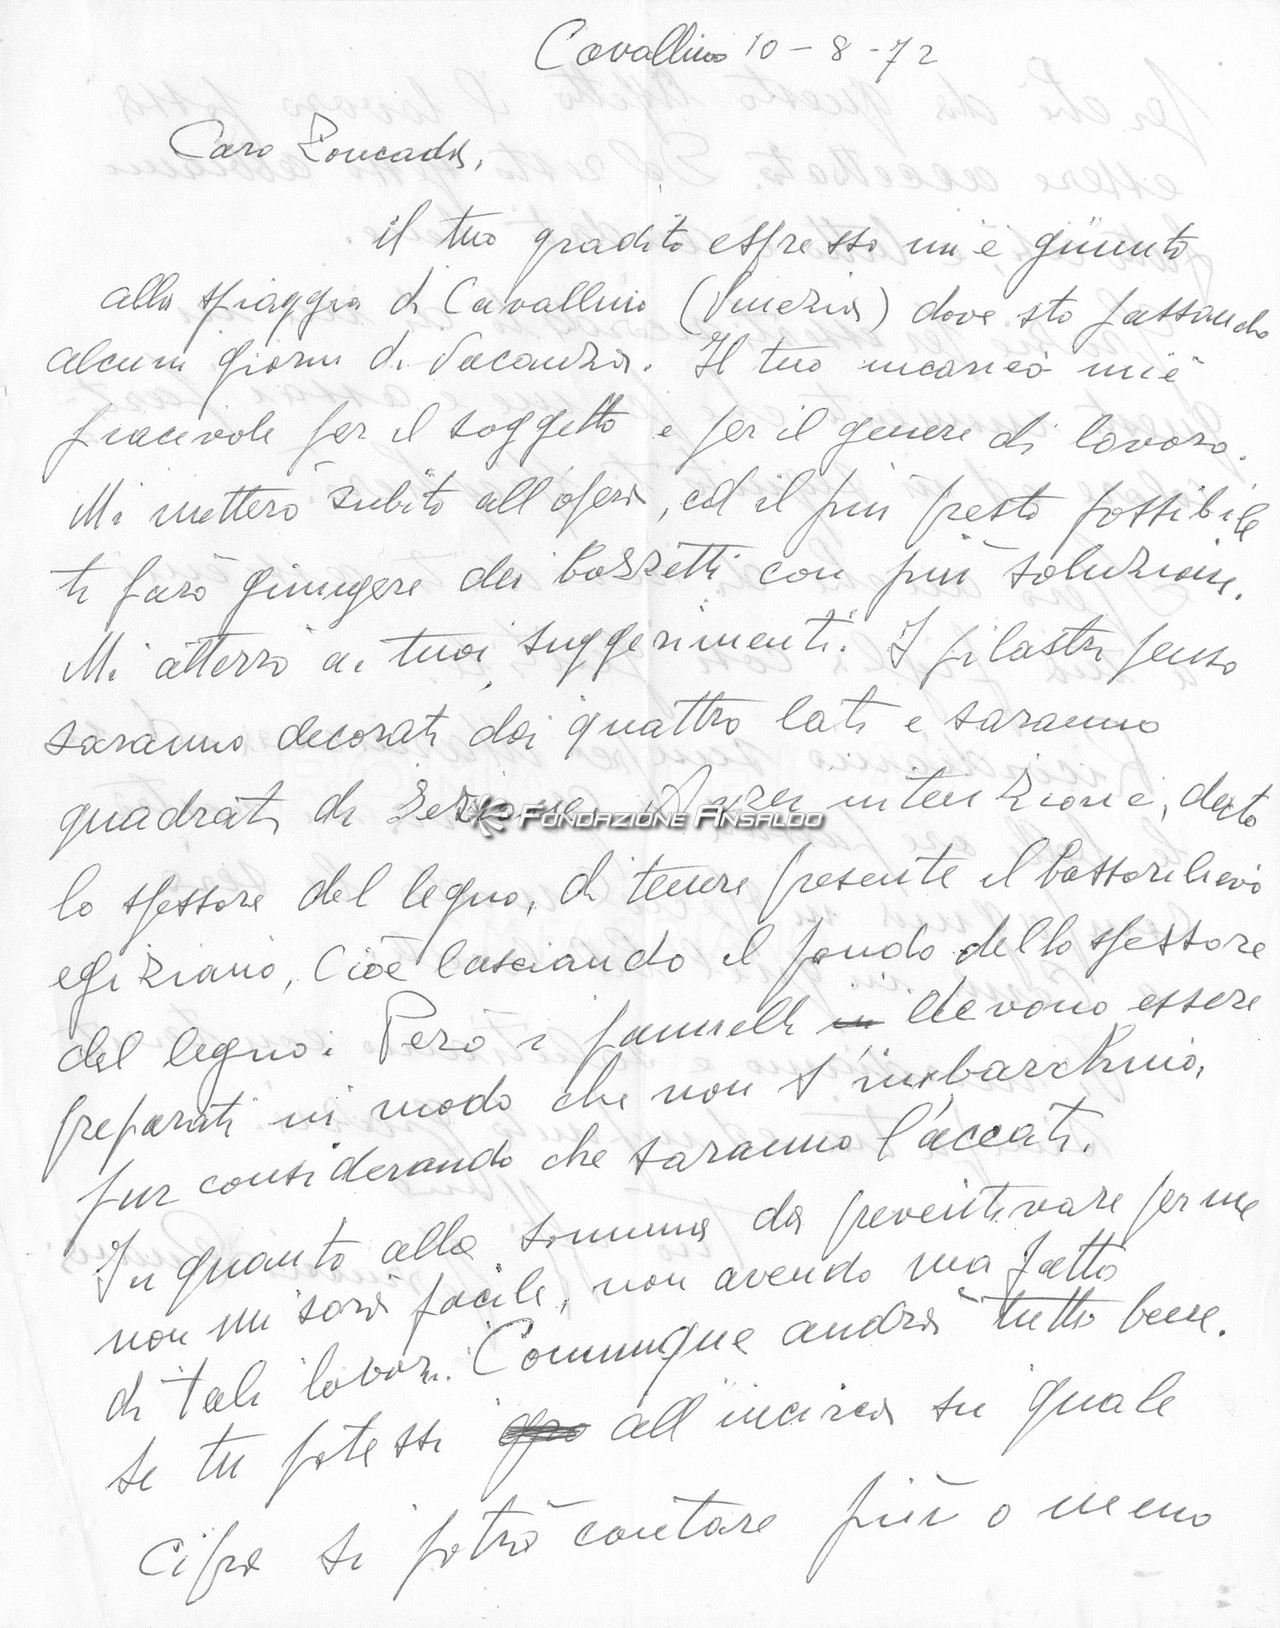 Cavallino 10-8-72
Caro Roncada,
il tuo gradito espresso mi è giunto
alla spiaggia di Cavallino (Venezia) dove sto passando
alcuni giorni di vacanza. Il tuo incarico mi è
piacevole per il soggetto e per il genere di lavoro.
Mi metterò subito all'opera, ed il più presto possibile
ti farò giungere dei bozzetti con più soluzioni.
Mi atterrò ai tuoi suggerimenti. I pilastri penso
saranno decorati dai quattro lati e saranno
quadrati di sezione. Avrei intenzione, dato
FONDAZIONE ANSALDO
lo spessore del legno, di tenere presente il bassorilievo
egiziano, cioè lasciando il fondo dello spessore
del legno. Però i pannelli devono essere
preparati in modo che non s'imbarchino,
pur considerando che saranno laccati.
In quanto alla somma da preventivare per me
non mi sarà facile, non avendo mai fatto
di tali lavori. Comunque andrà tutto bene.
Se tu potessi all'incirca su quale
cifra si potrà contare più o meno